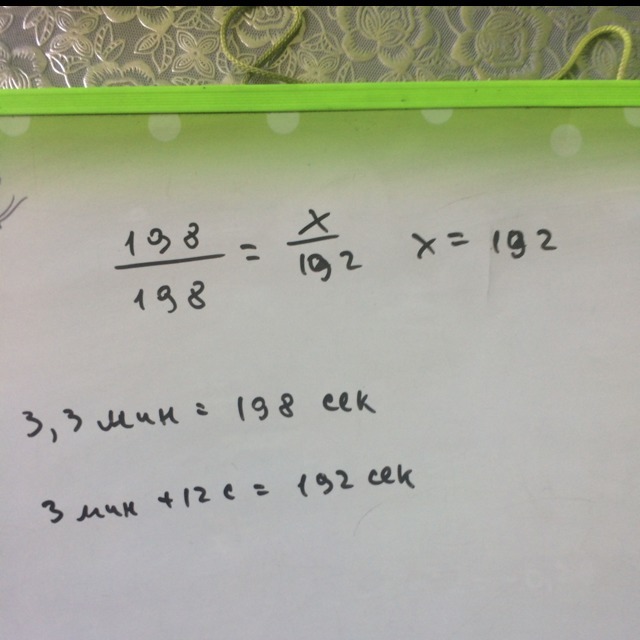 198/198 = x/192 x = 192
3,3 мин = 198 сек
3 мин + 12 с = 192 сек